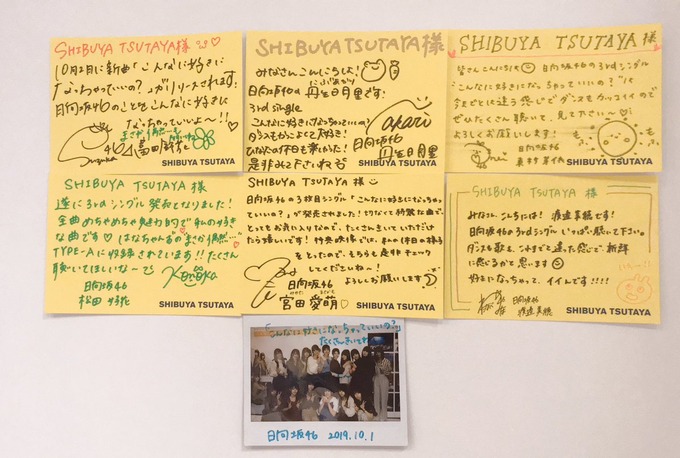 SHIBUYA TSUTAYA様
10月2日に新曲「こんなに好きに
なっちゃっていいの?」がリリースされます!
日向坂46のこともこんなに好きに
なっちゃっていいよ〜!!
SHIBUYA TSUTAYA
SHIBUYA TSUTAYA様
みなさんこんにちは!
日向坂46の丹生明里です!
3rd single
こんなに好きになっちゃっていいの?は
ダンスもかっこよくて大好き!
ひなたの休日も
是非みて下さいね
日向坂46
丹生明里
SHIBUYA TSUTAYA
SHIBUYA TSUTAYA 様
皆さんこんにちは 日向坂46 3rdシングル
"こんなに好きになっちゃっていいの?"は
今までとは違う感じでダンスもカッコイイので
ぜひたくさん聴いて、見て下さい〜
よろしくお願いします!
日向坂46
SHIBUYA TSUTAYA
SHIBUYA TSUTAYA 様
遂に3rdシングル発売となりました!
全曲めちゃめちゃ魅力的で私の好き
な曲です はなちゃんずの"まさか 偶然…"
TYPE-Aに収録されています!!たくさん
聴いてほしいな〜
Konoka
日向坂46
松田好花
SHIBUYA TSUTAYA
SHIBUYA TSUTAYA 様
日向坂46の3枚目シングル「こんなに好きになっちゃって
いいの?」が発売されました!切なくて綺麗な曲で、
とってもお気に入りなので、たくさんきいていただけ
たら嬉しいです!特典映像では、私の休日の様子
をとったので、そちらも是非チェック
してくださいね〜!
よろしくお願いします
日向坂46
宮田愛萌
SHIBUYA TSUTAYA
SHIBUYA TSUTAYA 様
みなさんこんにちは!渡邉美穂です!
日向坂46の3rdシングルいっぱい聴いて下さい。
ダンスも歌も、これまでと違った感じで新鮮
に感じるかと思います
好きになっちゃって、イイんです!!!!
日向坂46
渡邉美穂
SHIBUYA TSUTAYA
「こんなに好きになっちゃっていいの?」
たくさんきいてね
日向坂46 2019.10.1